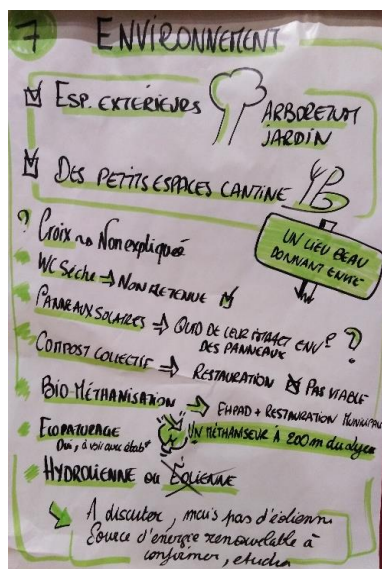 7 ENVIRONNEMENT
ESP. EXTÉRIEURS
ARBORETUM
JARDIN
DES PETITS ESPACES CANTINE
UN LIEU BEAU
DONNANT ENVIE
? Croix ~> Non expliquée
WC Sèche → NON RETENUE
PANNEAUX SOLAIRES ⇒ QUID DE LEUR IMPACT ENVᵗ ?
DES PANNEAUX
COMPOST COLLECTIF ⇒ RESTAURATION PAS VIABLE
BIO-MÉTHANISATION → EHPAD + RESTAURATION MUNICIPALE
ECOPATURAGE
Oui, à voir avec étabᵗ
UN MÉTHANISEUR À 200m du lycée
HYDROLIENNE OU EOLIENNE
A discuter, mais pas d'éolienne
Source d'énergie renouvelable à
confirmer, etudier